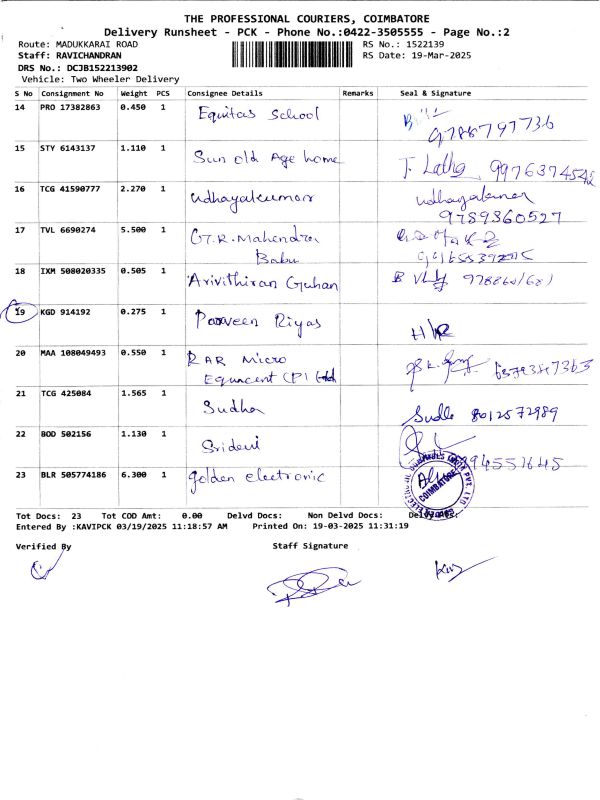 THE PROFESSIONAL COURIERS, COIMBATORE
Delivery Runsheet - PCK - Phone No.:0422-3505555 - Page No.:2
Route: MADUKKARAI ROAD RS No.: 1522139
Staff: RAVICHANDRAN RS Date: 19-Mar-2025
DRS No.: DCJB152213902
Vehicle: Two Wheeler Delivery
S No Consignment No Weight PCS Consignee Details Remarks Seal & Signature
14 PRO 17382863 0.450 1 Equitas School 9788797736
15 STY 6143137 1.110 1 Sun old Age home T. Latha 9976374542
16 TCG 41590777 2.270 1 udhayakumar udhayakumar
9789360527
17 TVL 6690274 5.500 1 G.R. Mahendra
Babu
18 IXM 508020335 0.505 1 Arivithiran Guhan
19 KGD 914192 0.275 1 Parveen Riyas H/R
20 MAA 108049493 0.550 1 RAR Micro
(P) Ltd
21 TCG 425084 1.565 1 Sudha 8012572989
22 BOD 502156 1.130 1 Sridevi
23 BLR 505774186 6.300 1 golden electronic
COIMBATORE
Tot Docs: 23 Tot COD Amt: 0.00 Delvd Docs: Non Delvd Docs:
Entered By :KAVIPCK 03/19/2025 11:18:57 AM Printed On: 19-03-2025 11:31:19
Verified By Staff Signature